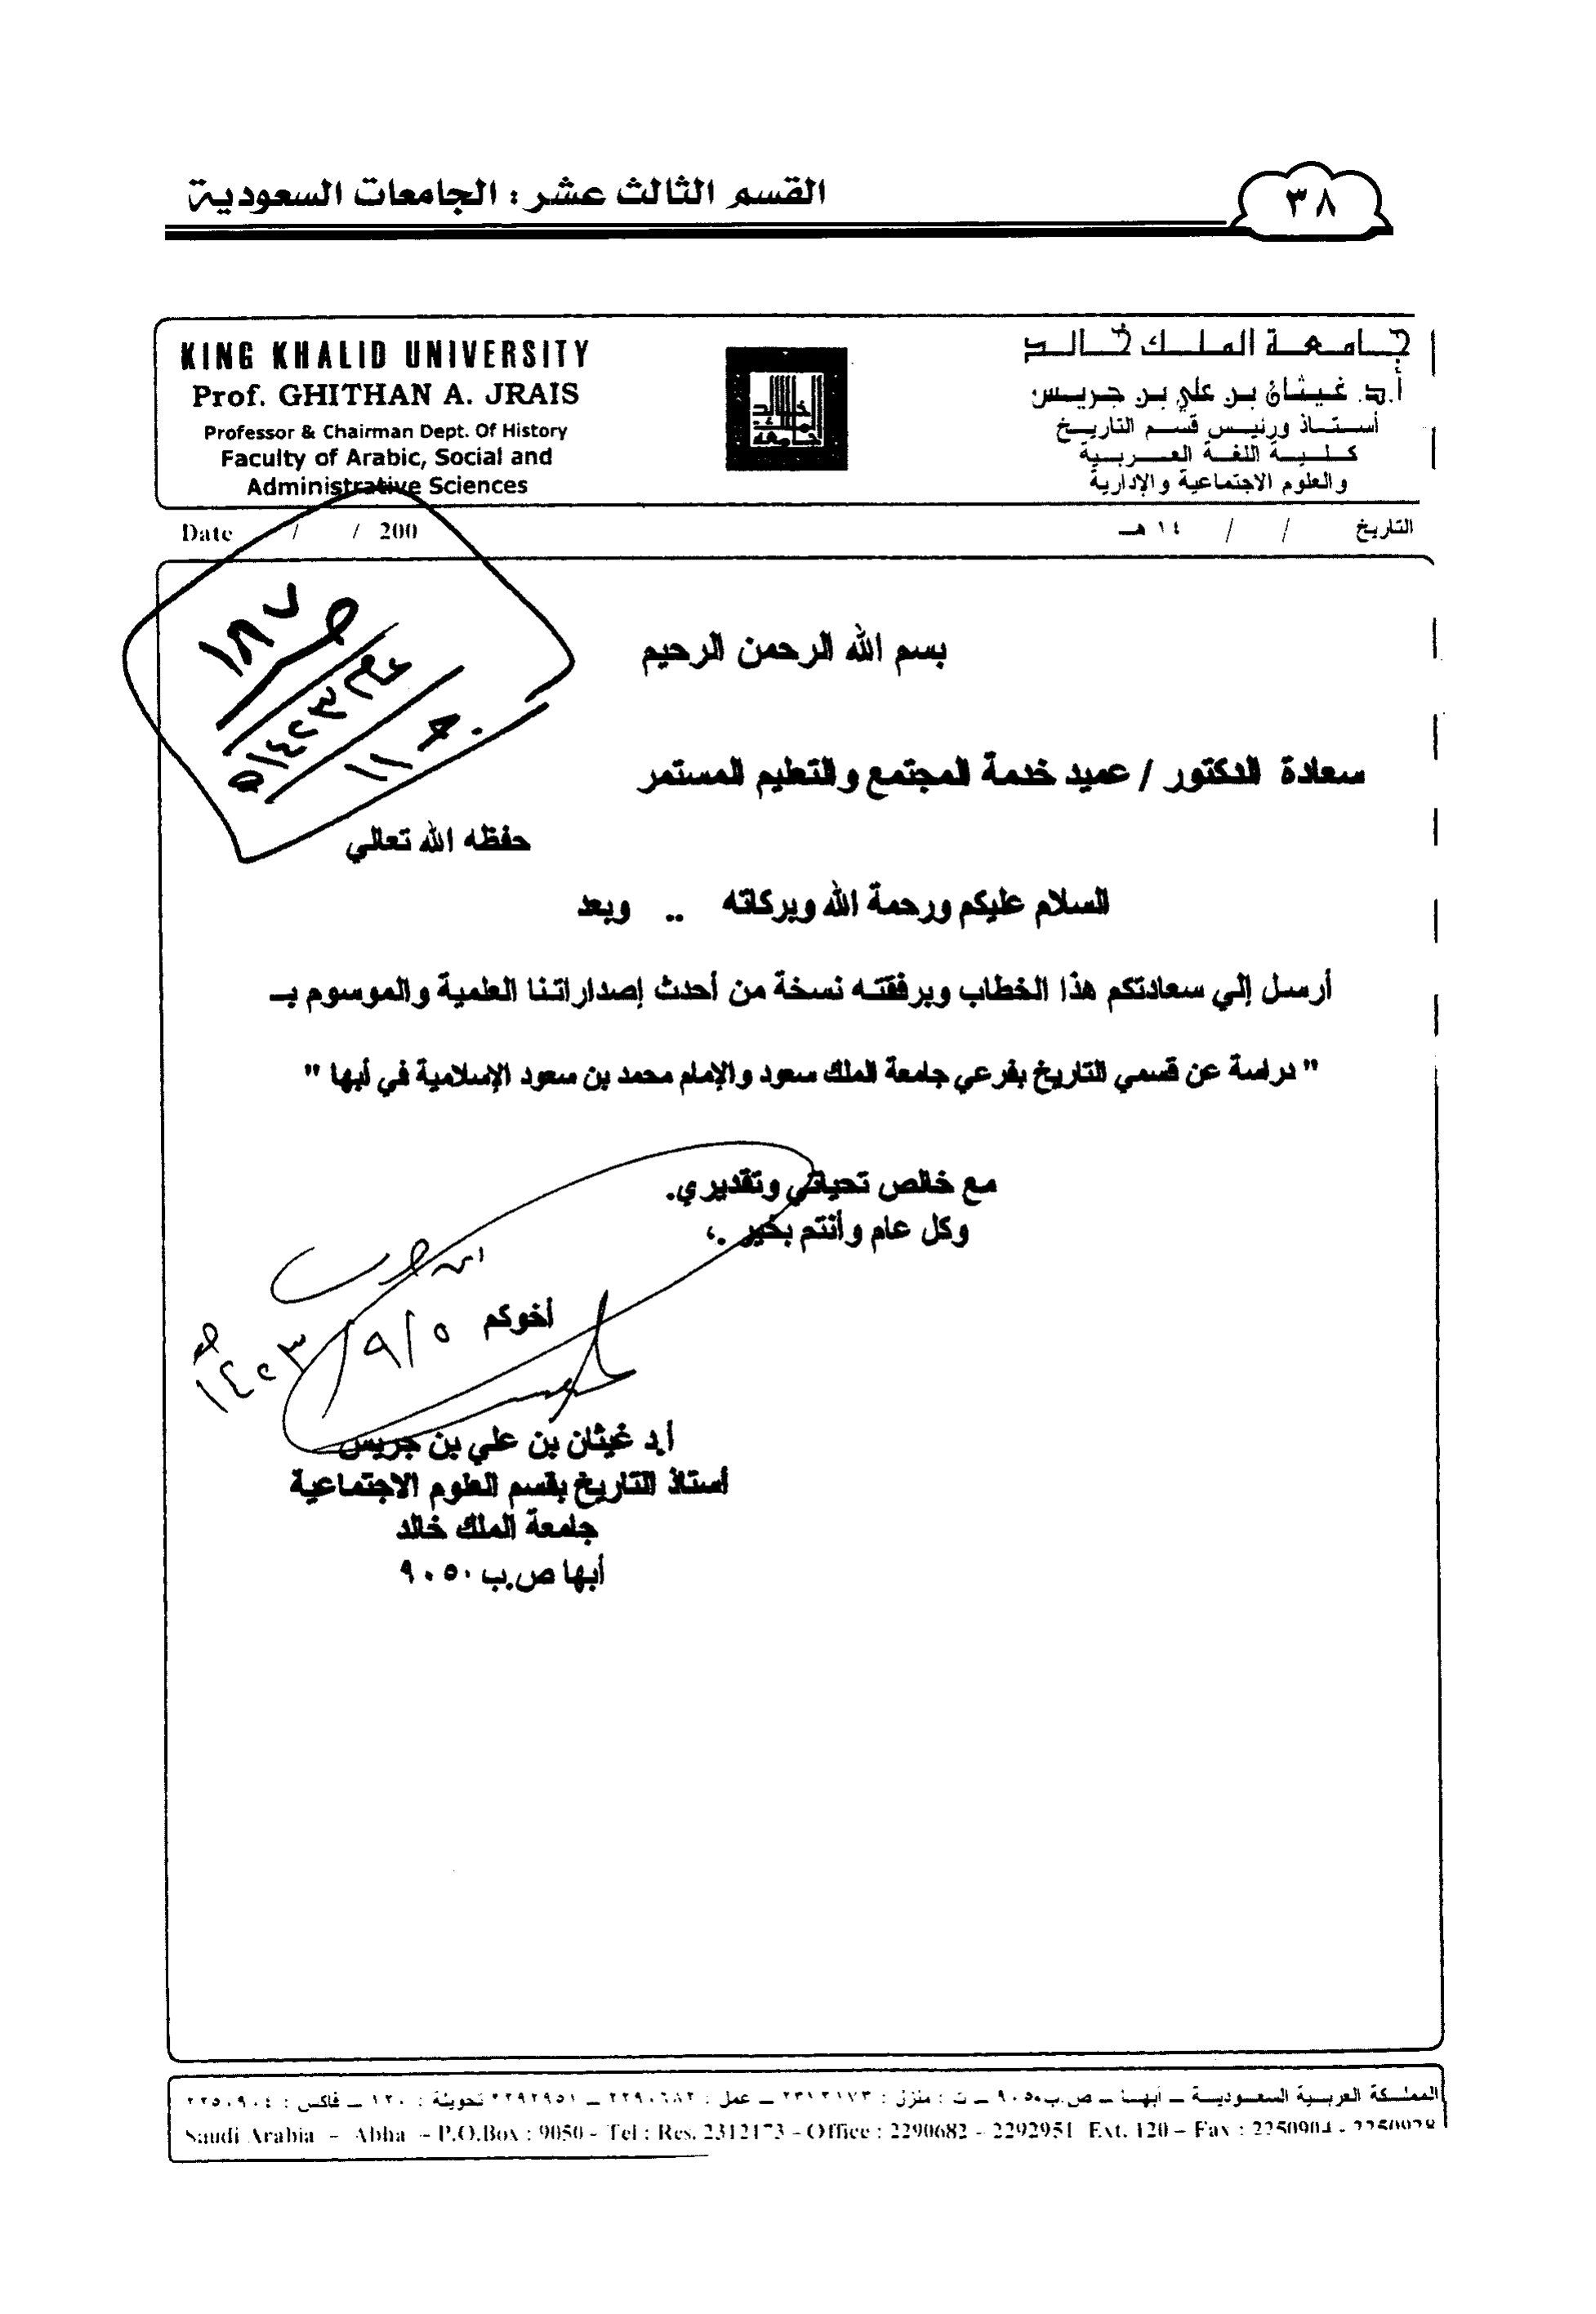 القسم الثالث عشر: الجامعات السعودية
٣٨
KING KHALID UNIVERSITY
Prof. GHITHAN A. JRAIS
Professor & Chairman Dept. Of History
Faculty of Arabic, Social and
Administrative Sciences
جامعة الملك خالد
أ.د. غيثان بن علي بن جريس
أستاذ ورئيس قسم التاريخ
كلية اللغة العربية
والعلوم الاجتماعية والإدارية
Date / / 200
التاريخ / / ١٤ هـ
١٨٧
بسم الله الرحمن الرحيم
سعادة الدكتور / عميد خدمة المجتمع والتعليم المستمر
حفظه الله تعالي
السلام عليكم ورحمة الله وبركاته .. وبعد
أرسل إلي سعادتكم هذا الخطاب وبرفقته نسخة من أحدث إصداراتنا العلمية والموسوم بـ
" دراسة عن قسمي التاريخ بفرعي جامعة الملك سعود والإمام محمد بن سعود الإسلامية في أبها "
مع خالص تحياتي وتقديري.
وكل عام وأنتم بخير .،
أخوكم
٥/٩/١٤٢٣هـ
أ.د غيثان بن علي بن جريس
أستاذ التاريخ بقسم العلوم الاجتماعية
جامعة الملك خالد
أبها ص.ب ٩٠٥٠
المملكة العربية السعودية – أبها – ص.ب ٩٠٥٠ – ت : منزل : ٢٣١٢١٧٣ – عمل : ٢٢٩٠٦٨٢ – ٢٢٩٢٩٥١ تحويلة : ١٢٠ – فاكس : ٢٢٥٠٩٠٤
Saudi Arabia – Abha – P.O.Box : 9050 - Tel : Res. 2312173 – Office : 2290682 – 2292951 Ext. 120 – Fax : 2250904 - 2250928